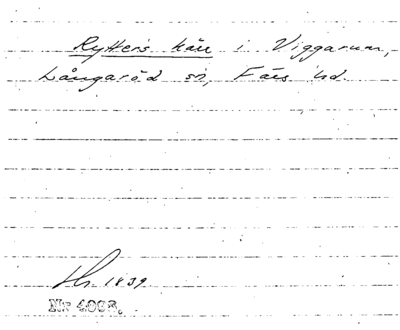 Rytters kär i Viggarum,
Långaröd sn, Färs hd.
1839
Nr